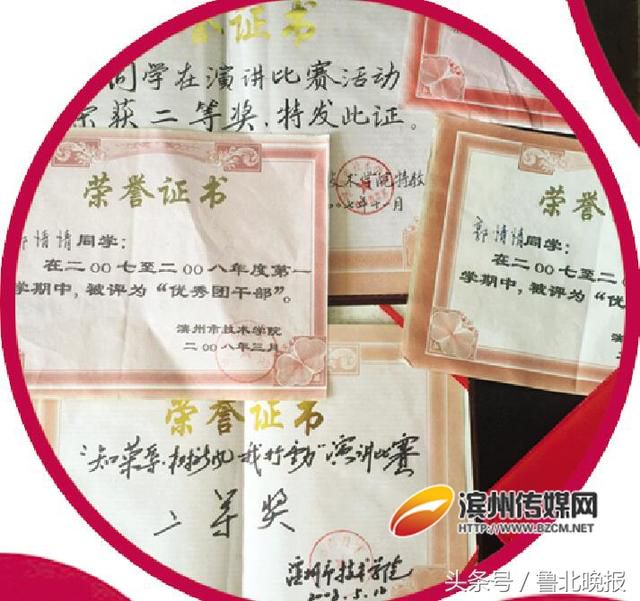 荣誉证书
同学在演讲比赛活动
荣获二等奖，特发此证。
技术学院特教
荣誉证书
郭倩倩同学：
在二〇〇七至二〇〇八年度第一
学期中，被评为“优秀团干部”。
滨州市技术学院
二〇〇八年三月
荣誉证
郭倩倩同学：
在二〇〇七至二〇〇
学期中，被评为“优
荣誉证书
演讲比赛
二等奖
滨州市技术学院
滨州传媒网
WWW.BZCM.NET
头条号／鲁北晚报